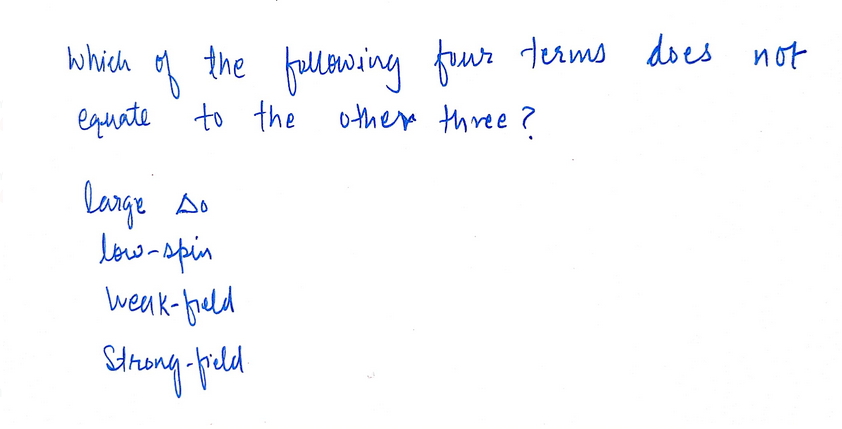 Which of the following four terms does not
equate to the other three?
large Δo
low-spin
Weak-field
Strong-field